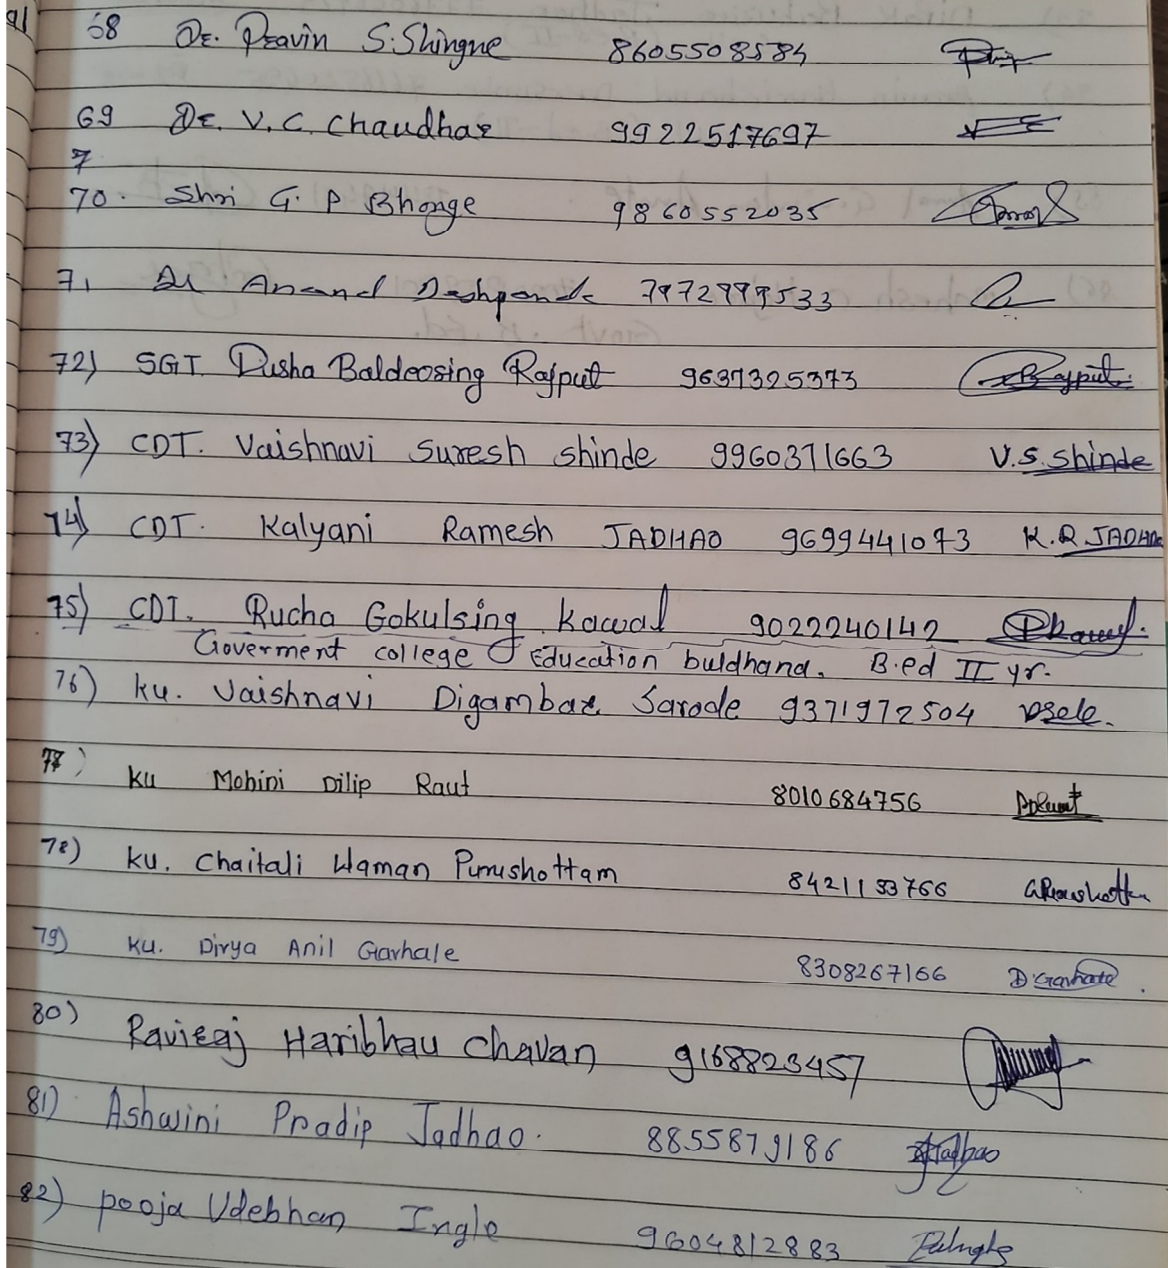 68 Dr. Pravin S. Shingne 8605508584
69 Dr. V. C. Chaudhar 9922517697
7
70. Shri G. P Bhonge 9860552035
71 Dr Anand Deshpande 7972999533
72) SGT. Dusha Baldeosing Rajput 9637325373 Rajput
73) CDT. Vaishnavi Suresh Shinde 9960371663 V.S. Shinde
74) CDT. Kalyani Ramesh JADHAO 9699441073 K.R JADHAO
75) CDT. Rucha Gokulsing Kawal 9022240142
Goverment college of Education buldhana. B.ed II yr.
76) ku. Vaishnavi Digambar Sarode 9371972504
77) ku Mohini Dilip Raut 8010684756
78) ku. Chaitali Waman Purushottam 8421153766
79) ku. Divya Anil Gavhale 8308267166 D Gavhale
80) Raviraj Haribhau Chavan 9168823457
81) Ashwini Pradip Jadhao. 8855879186 Jadhao
82) pooja Udebhan Ingle 9604812883